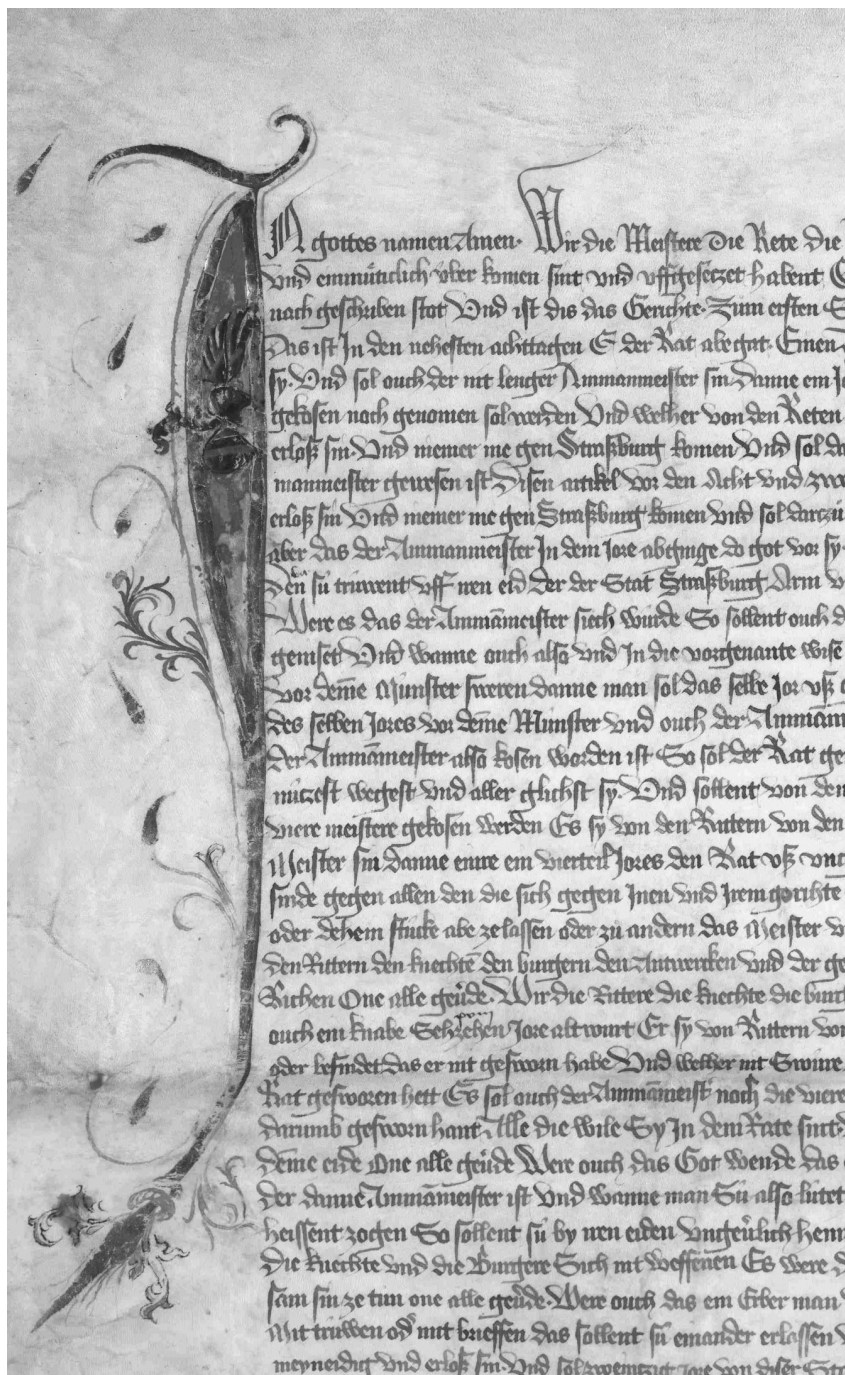 IN gottes namen Amen. Wir die Meistere Die Rete die
vnd einmüticlich vber komen sint vnd vffgesetzet habent
nach geschriben stot Vnd ist dis das Gerichte. Zum ersten
Das ist In den nehesten achttagen E der Rat abe gat. Einen
sy. Vnd sol ouch der nit lenger Ammanmeister sin. danne ein
gekosen noch genomen sol werden Vnd welher von den Reten
erloß sin. Vnd niemer me gen Straßburg komen. Vnd sol
manmeister gewesen ist Disen artikel vor den Acht vnd
erloß sin Vnd niemer me gen Straßburg komen vnd sol darzů
aber das der Ammanmeister In dem Jore abginge do got vor sy.
Den sü truwent vff iren eid Der der Stat Straßburg Arm
Were es das der Ammāmeister siech wurde So sollent ouch
geniset Vnd wanne ouch also vnd In die vorgenante wise
vor deme Munster sweren danne man sol das selbe Jor vß
des selben Jores vor deme Munster vnd ouch der
der Ammāmeister also kosen worden ist So sol der Rat
nützest wegest vnd aller glichst sy. Vnd sollent von den
viere meistere gekosen werden Es sy von den Rittern von den
Meister sin danne eine ein vierteil Jores den Rat vß
sinde gegen allen den die sich gegen Inen vnd Irem gerihte
oder dehein stücke abe ze lassen oder zů andern das Meister
den Rittern den knechtē den burgern den Antwercken vnd der
Richen One alle geu̇de. Wir die Rittere die knechte die
ouch ein knabe Sehzehen Jore alt wurt Er sy von Rittern
oder befindet das er nit gesworn habe Vnd welher nit Swüre
Rat gesworen hett Es sol ouch der Ammāmeist' noch die viere
darumb gesworn hant Alle die wile Sy In dem Rate sint.
deme eide One alle geu̇de Were ouch das Got wende das
der danne Ammāmeister ist Vnd wanne man Sü also lütet
heissent zogen So sollent sü by iren eiden vngeu̇lich
die knechte vnd die Burgere Sich mt weffenen Es were
sam sin ze tün one alle geu̇de. Were ouch das ein Erber man
Mit trüwen od' mit brieffen das sollent sü einander erlassen
meyneidig vnd erloß sin. Vnd sol zweintzig Jore von diser